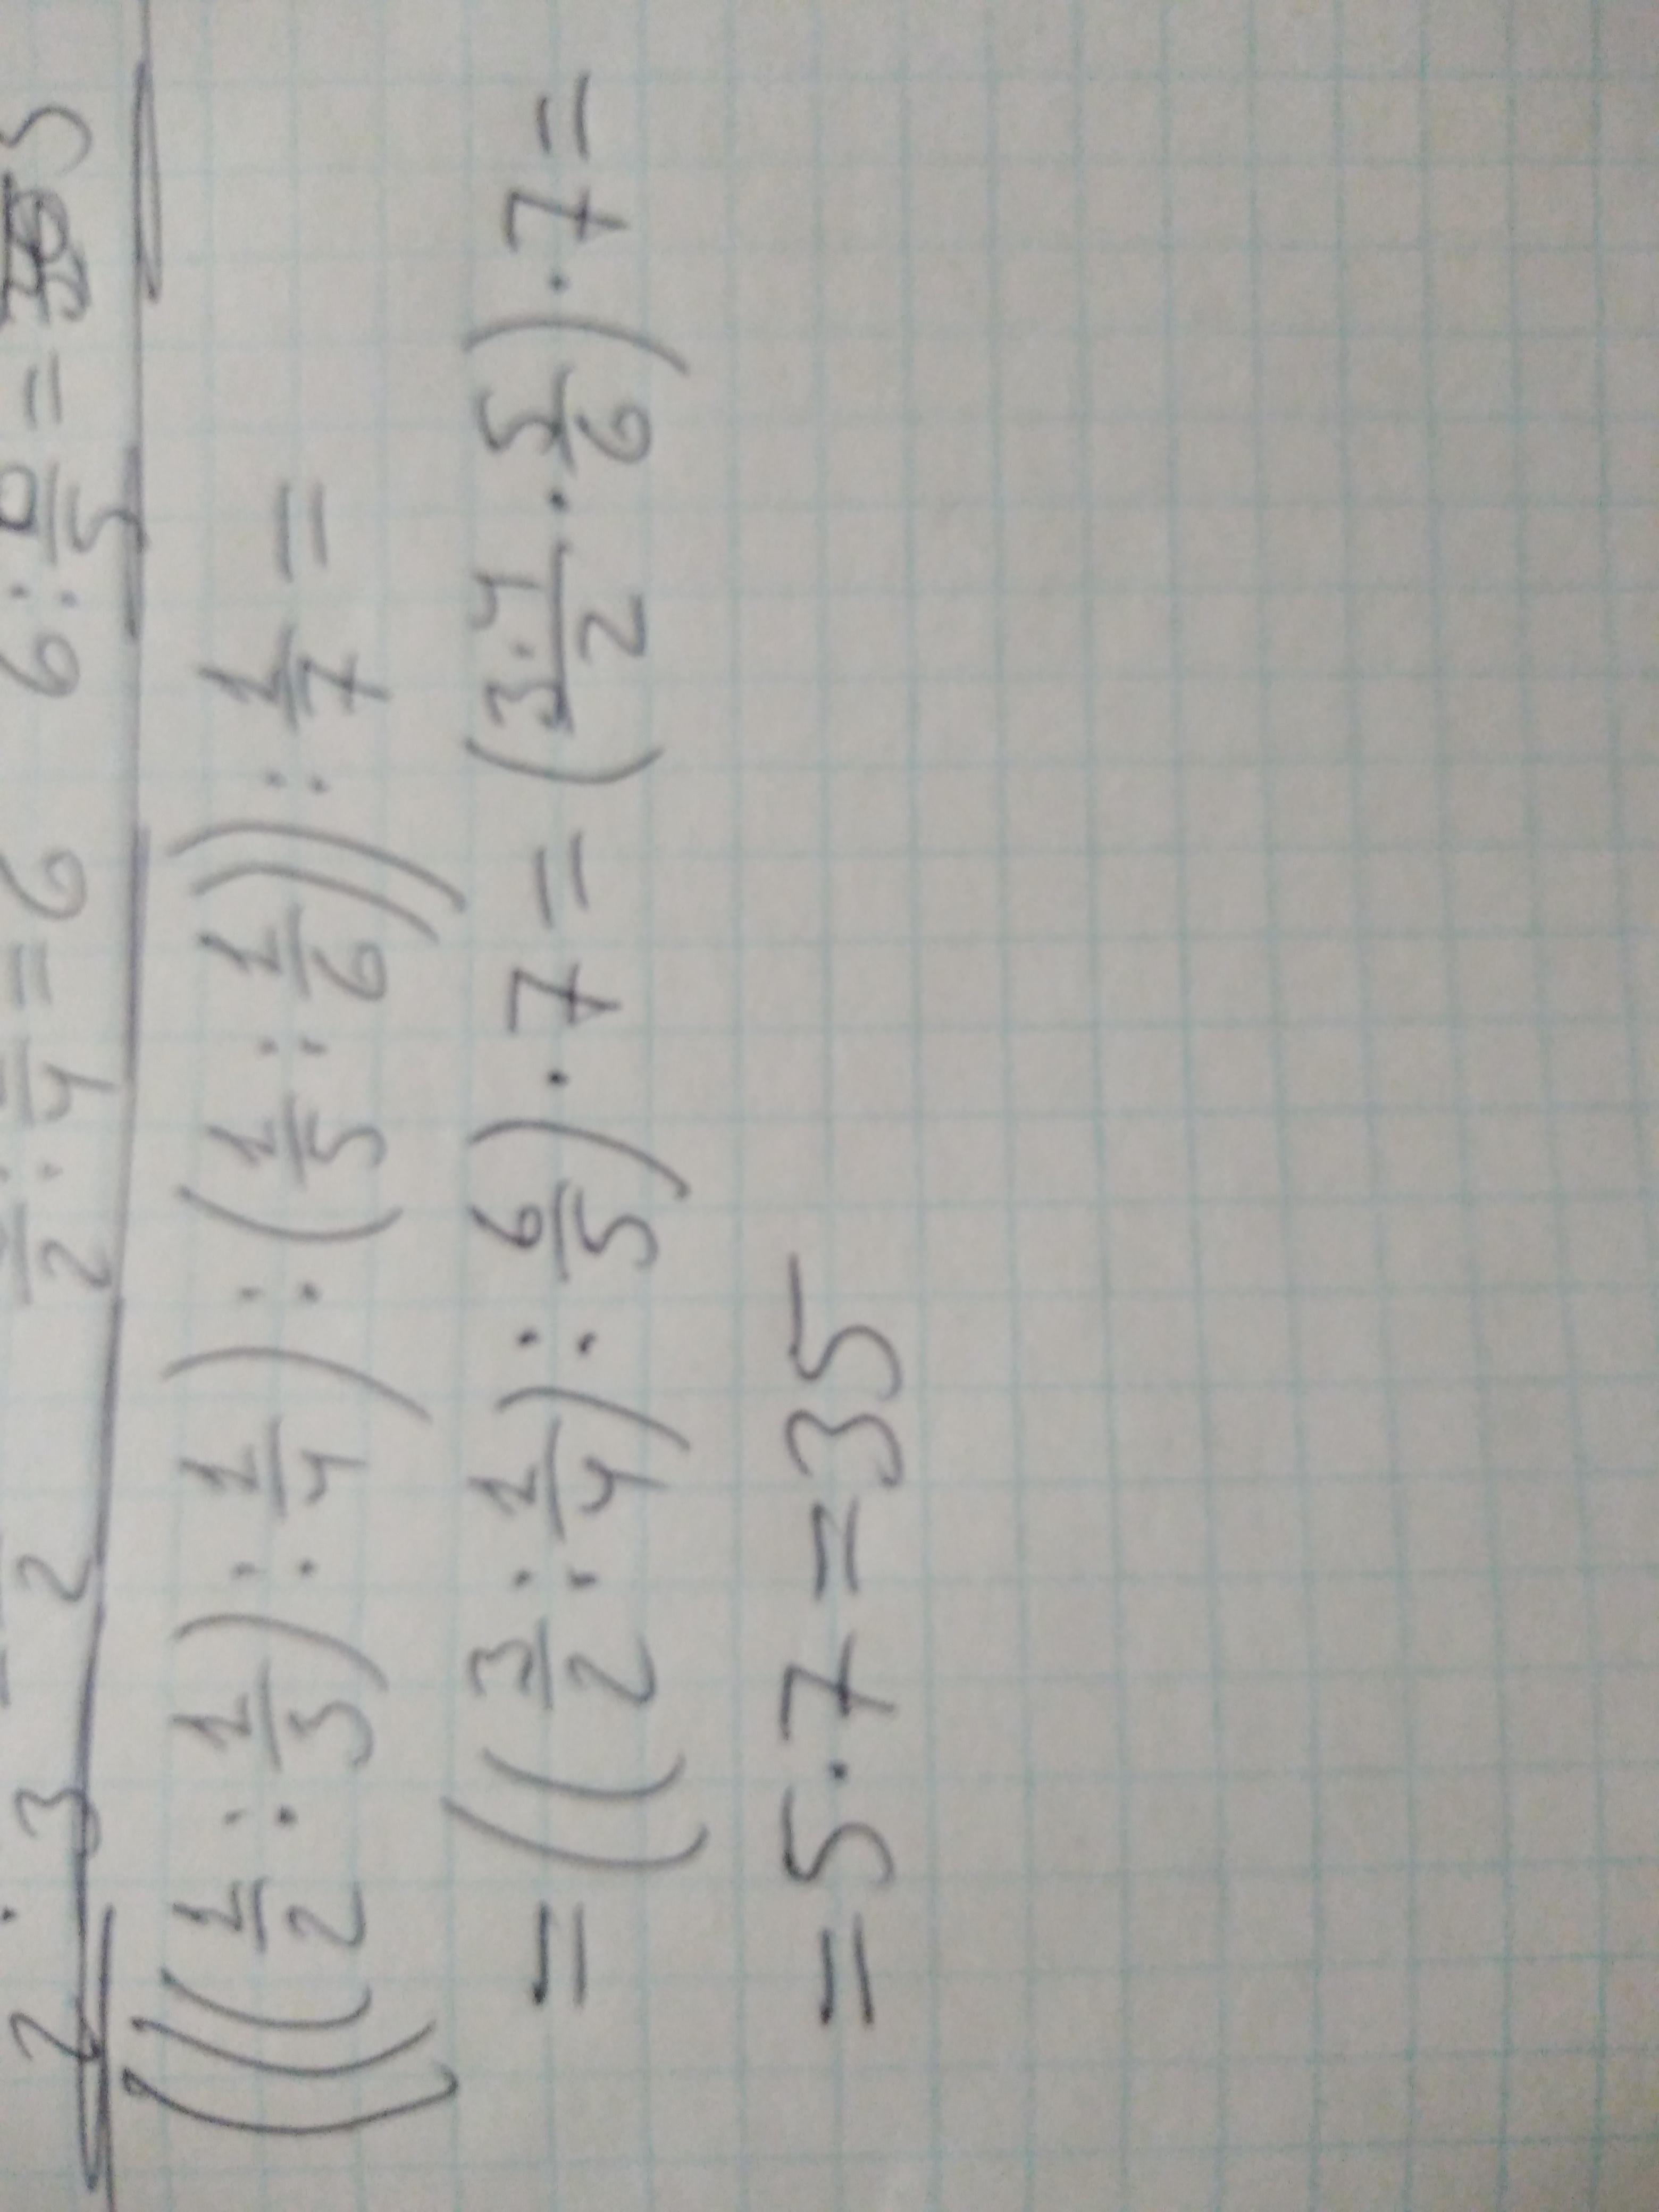 2 · 3 2 2 : 4 = 6 6 : 5 = 5
(((1/2 : 1/3) : 1/4) : (1/5 : 1/6)) : 1/7 =
= ((3/2 : 1/4) : 6/5) · 7 = (3·4/2 · 5/6) · 7 =
= 5 · 7 = 35